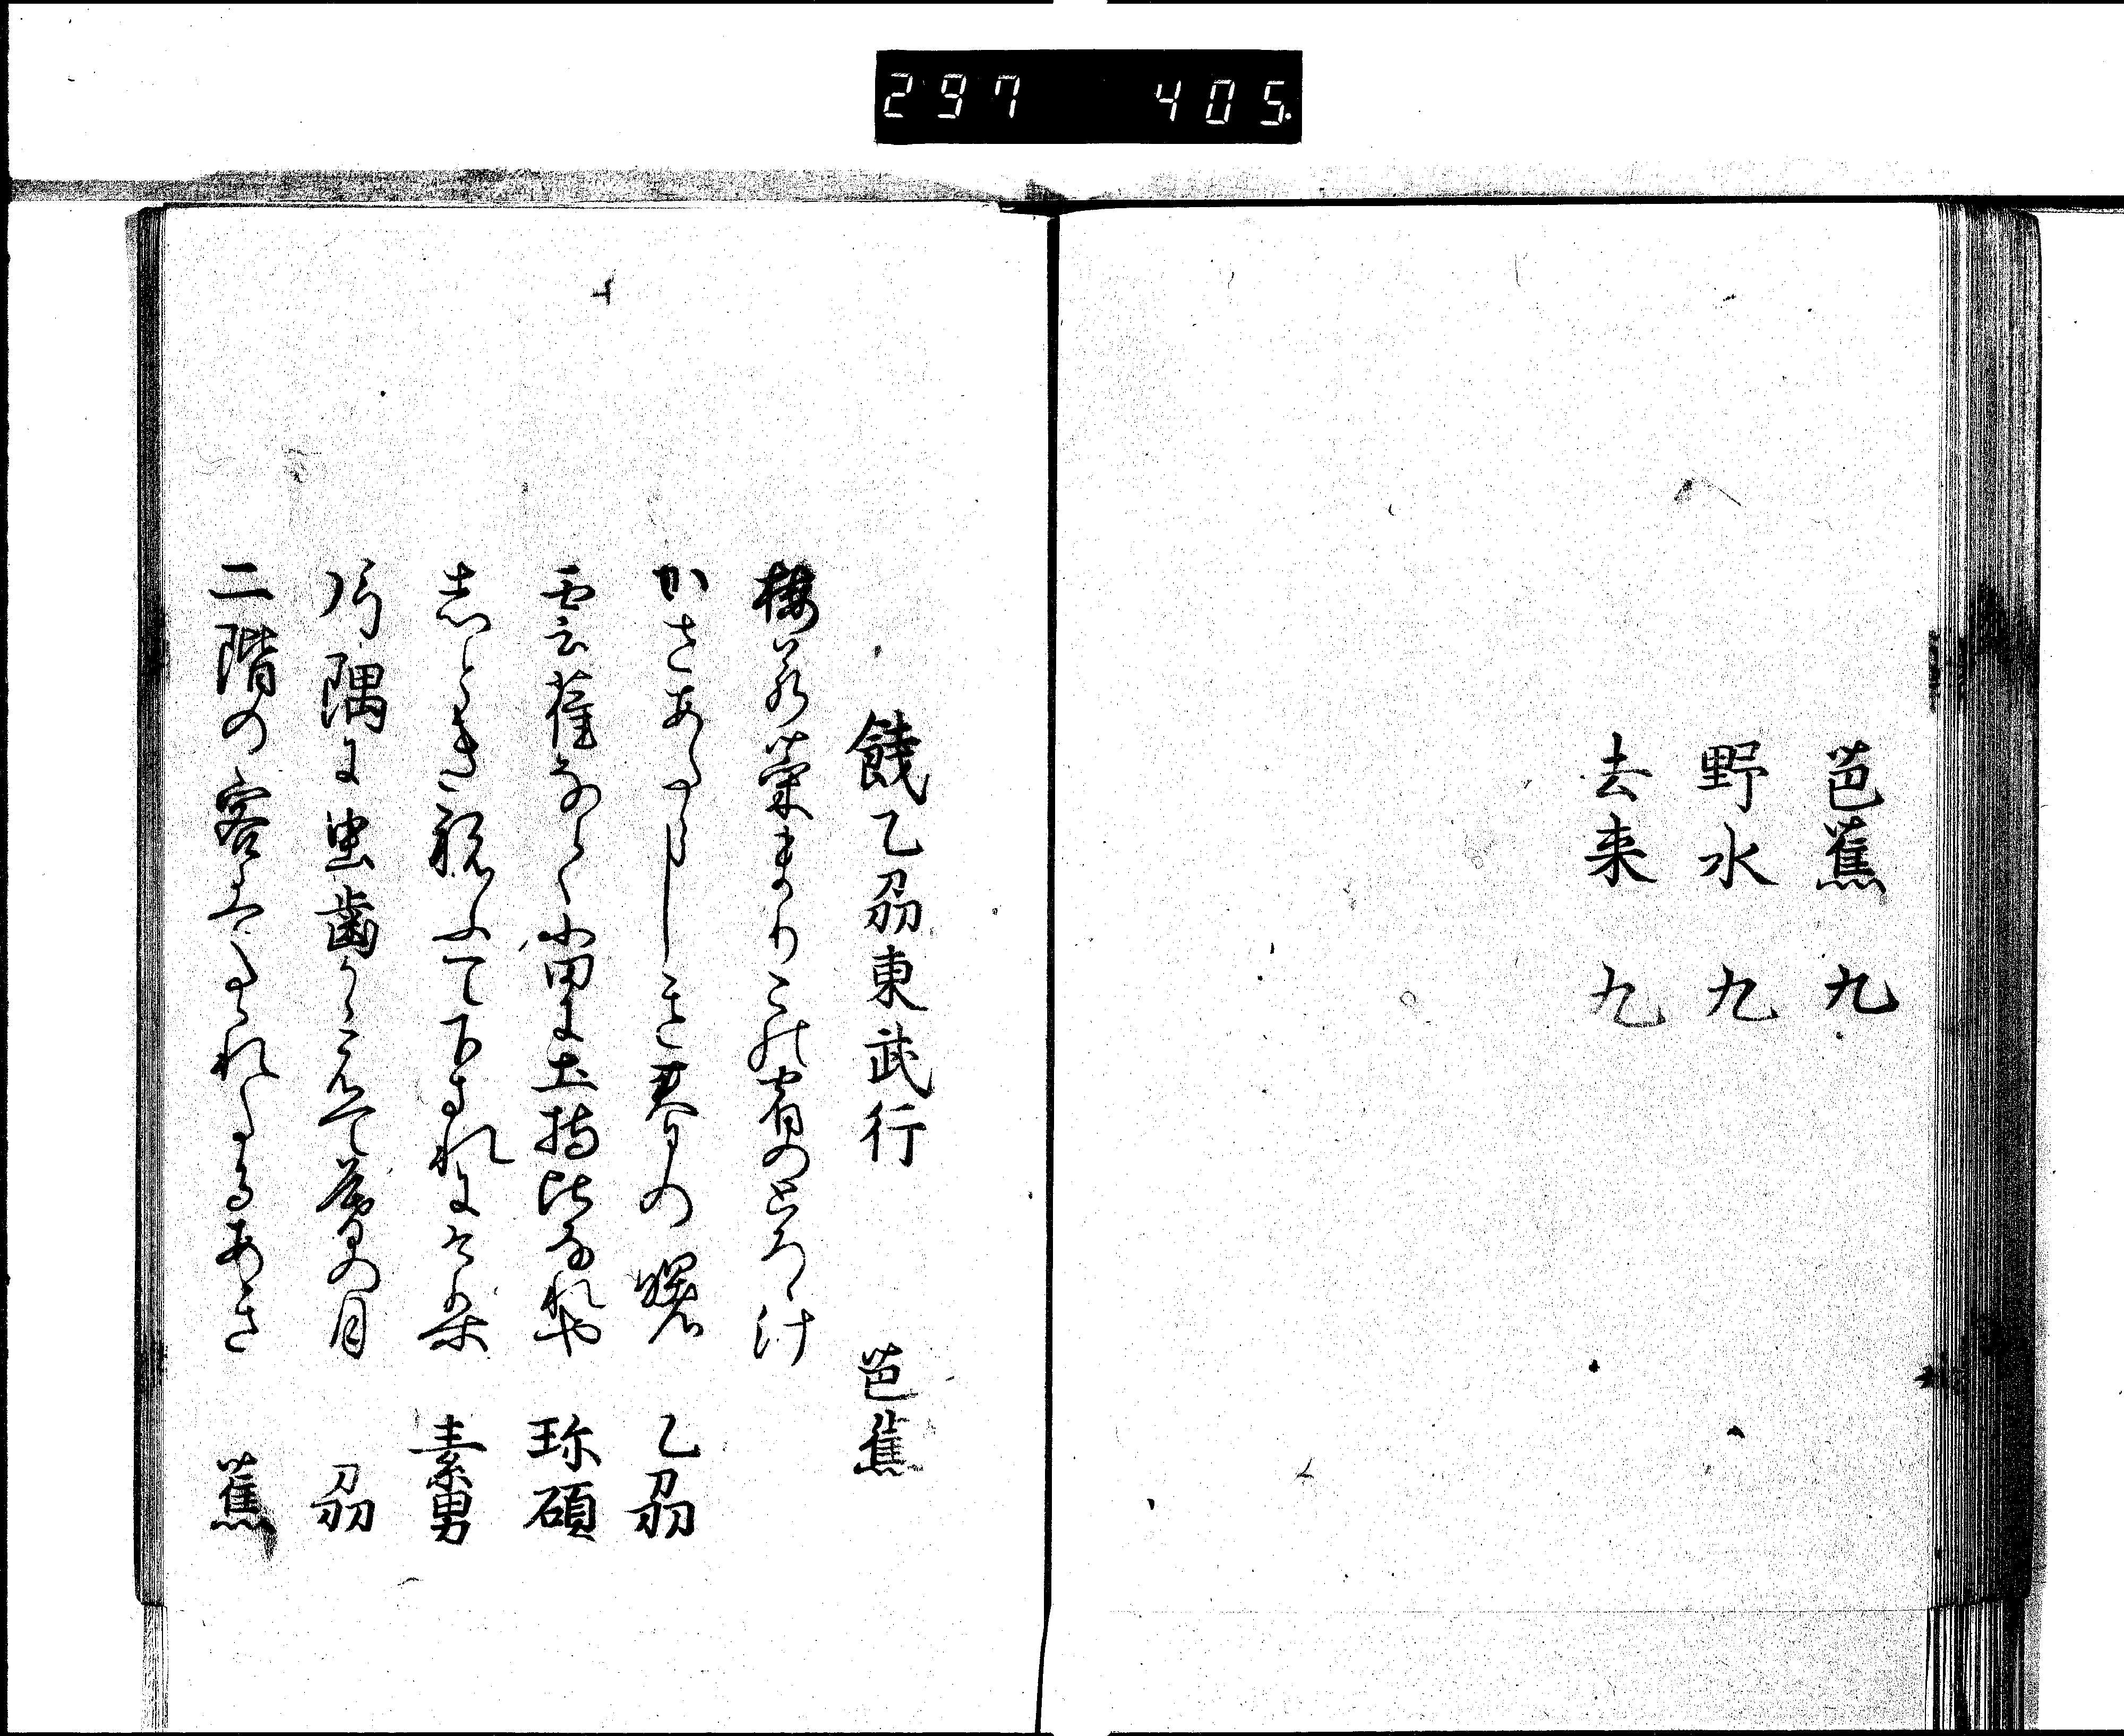 297 405.
芭蕉 九
野水 九
去来 九
餞乙刕東武行 芭蕉
梅若菜まりこの宿のとろゝ汁
かさあたらしき春の曙 乙刕
雲雀なく小田に土持比なれや 珎碩
志とき祝ふて下されにけり 素男
片隅に虫歯かゝえて暮の月 刕
二階の客はたゝれたるあき 蕉